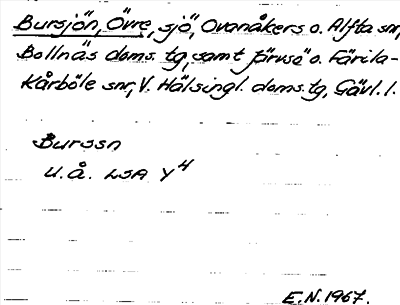 Bursjön, Övre, sjö, Ovanåkers o. Alfta snr,
Bollnäs doms. tg, samt Järvsö o. Färila-
Kårböle snr, V. Hälsingl. doms. tg, Gävl. l.
Burssn
U.Å. LSA Y4
E.N. 1967.